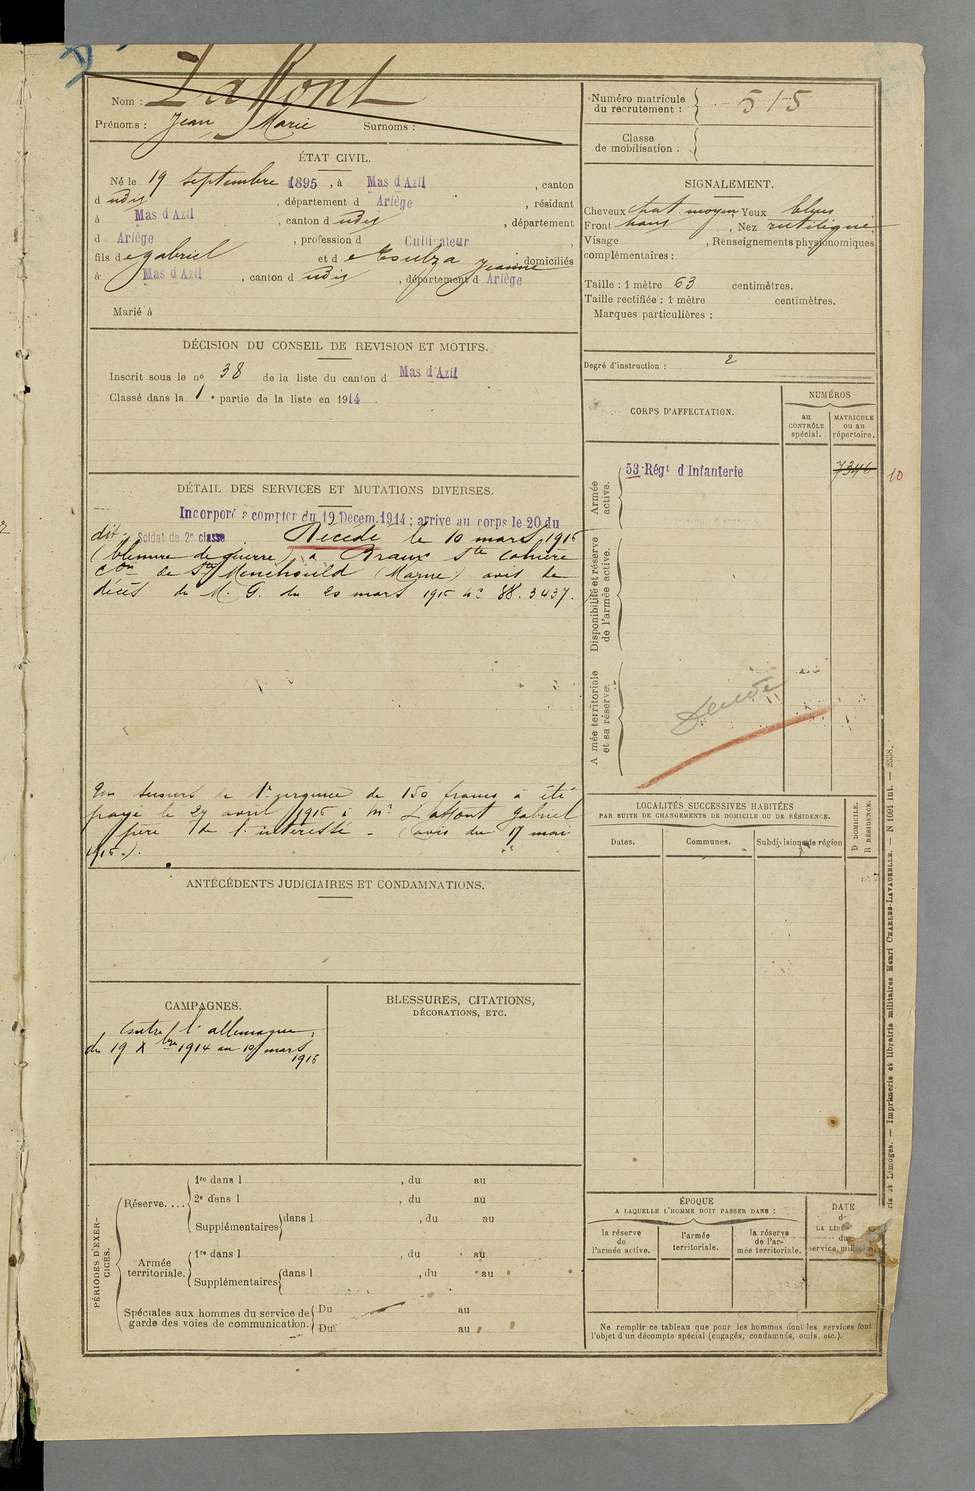 Nom : Laffont
Prénoms : Jean Marie Surnoms :
ÉTAT CIVIL.
Né le 19 septembre 1895, à Mas d'Azil, canton
d udit, département d Ariège, résidant
à Mas d'Azil, canton d udit, département
d Ariège, profession d Cultivateur,
fils de gabriel et de Jeanne domiciliés
à Mas d'Azil, canton d udit, département d Ariège
Marié à
DÉCISION DU CONSEIL DE REVISION ET MOTIFS.
Inscrit sous le nº 38 de la liste du canton d Mas d'Azil
Classé dans la 1e partie de la liste en 1914
DÉTAIL DES SERVICES ET MUTATIONS DIVERSES.
Incorporé à compter du 19 Décem. 1914 ; arrivé au corps le 20 du
dit. Soldat de 2e classe. Décédé le 10 mars 1915
(blessure de guerre) à Braux Ste Cohière
Con de Ste Menehould (Marne) avis de
décès du M. G. du 20 mars 1915 nº 88.3437.
Un secours de 1e urgence de 150 francs a été
payé le 27 avril 1915 à Mr Laffont gabriel
père de l'intéressé - (avis du 17 mai
1915.).
ANTÉCÉDENTS JUDICIAIRES ET CONDAMNATIONS.
CAMPAGNES.
Contre l'allemagne,
du 19 Xbre 1914 au 10 mars
1915
BLESSURES, CITATIONS,
DÉCORATIONS, ETC.
PÉRIODES D'EXER-
CICES.
Réserve....
1re dans l , du au
2e dans l , du au
Supplémentaires dans l , du au
Armée
territoriale.
1re dans l , du au
Supplémentaires dans l , du au
Spéciales aux hommes du service de
garde des voies de communication.
Du au
Du au
Numéro matricule
du recrutement : 515
Classe
de mobilisation :
SIGNALEMENT.
Cheveux chat. moyen Yeux bleus
Front haut, Nez rectiligne
Visage , Renseignements physionomiques
complémentaires :
Taille : 1 mètre 63 centimètres.
Taille rectifiée : 1 mètre centimètres.
Marques particulières :
Degré d'instruction : 2
CORPS D'AFFECTATION.
NUMÉROS
au
CONTRÔLE
spécial.
MATRICULE
ou au
répertoire.
Armée
active.
53e Régt d'Infanterie
7346
10
Disponibilité et réserve
de l'armée active.
A mée territoriale
et sa réserve.
LOCALITÉS SUCCESSIVES HABITÉES
PAR SUITE DE CHANGEMENTS DE DOMICILE OU DE RÉSIDENCE.
Dates.
Communes.
Subdivisions de région
D DOMICILE.
R RÉSIDENCE.
ÉPOQUE
A LAQUELLE L'HOMME DOIT PASSER DANS :
la réserve
de
l'armée active.
l'armée
territoriale.
la réserve
de l'ar-
mée territoriale.
DATE
du
service
Ne remplir ce tableau que pour les hommes dont les services font
l'objet d'un décompte spécial (engagés, condamnés, omis, etc.).
Limoges. — Imprimerie et librairie militaires Henri CHARLES-LAVAUZELLE. — N 1001 int.